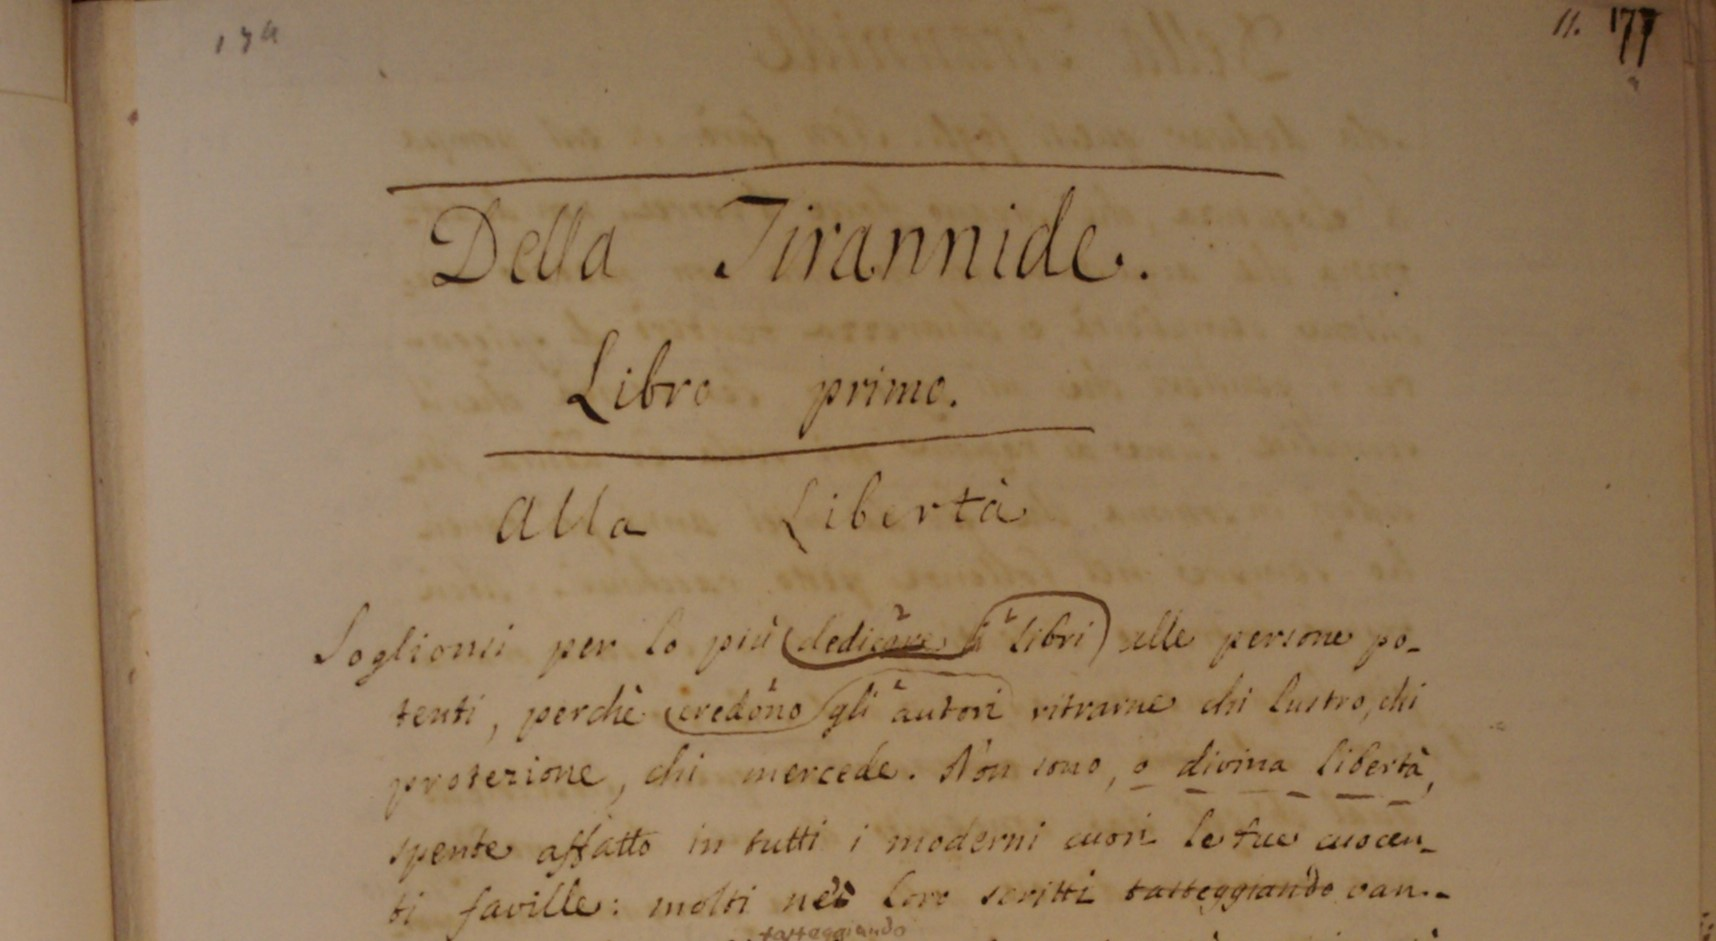 174
11. 177
Della Tirannide.
Libro primo.
Alla Libertà
Soglionsi per lo più dedicare i libri alle persone po-
tenti, perchè credono gli autori ritrarne chi lustro, chi
protezione, chi mercede. Non sono, o divina libertà,
spente affatto in tutti i moderni cuori le tue cuocen-
ti faville: molti nei loro scritti tasteggiando van-
tasteggiando